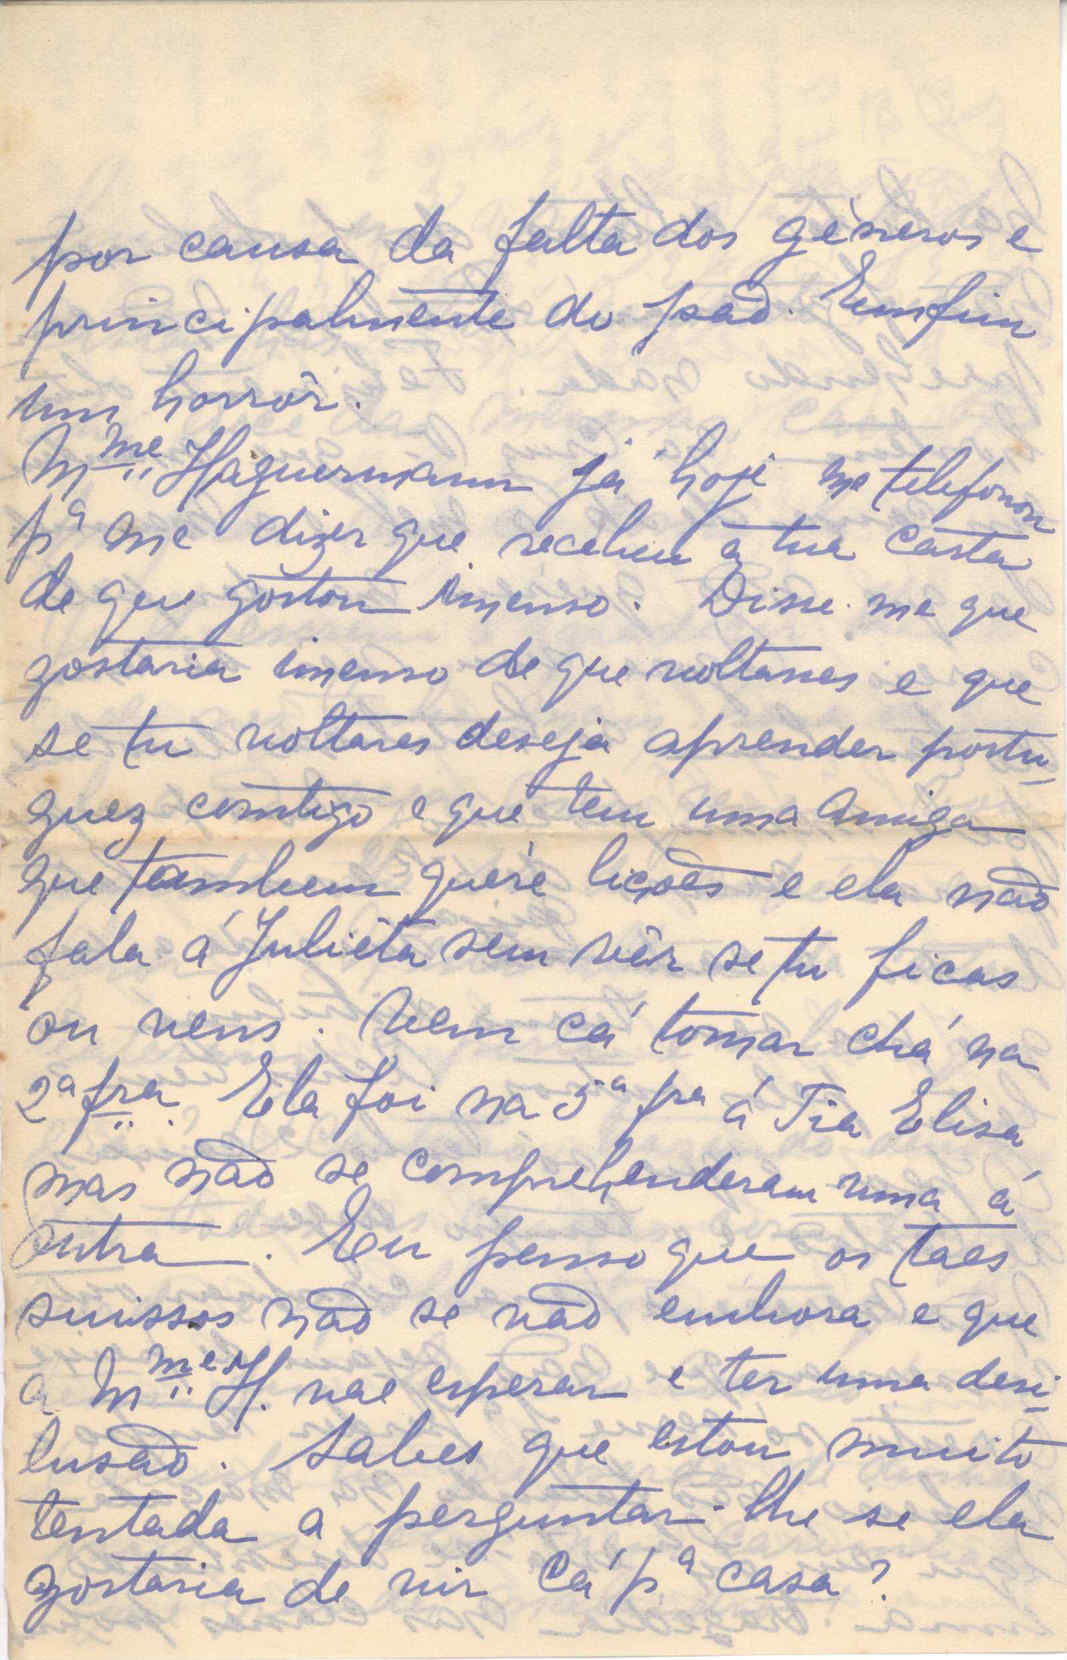 por causa da falta dos géneros e
principalmente do pão. Emfim
um horrôr.
Mme Haguermann já hoje me telefonou
pª me dizer que recebeu a tua carta
de que gostou imenso. Disse-me que
gostaria imenso de que voltasses e que
se tu voltares deseja aprender portu-
guez comtigo e que tem uma amiga
que tambem quére lições e ela não
fala á Juliêta sem vêr se tu ficas
ou vens. Vem cá tomar chá na
2ª fra. Ela foi na 5ª fra á Tia Elisa
mas não se comprehenderam uma á
outra. Eu penso que os taes
suissos não se vão embora e que
a Mme H. vae esperar e ter uma desi-
lusão. Sabes que estou muito
tentada a perguntar-lhe se ela
gostaria de vir cá pª casa?